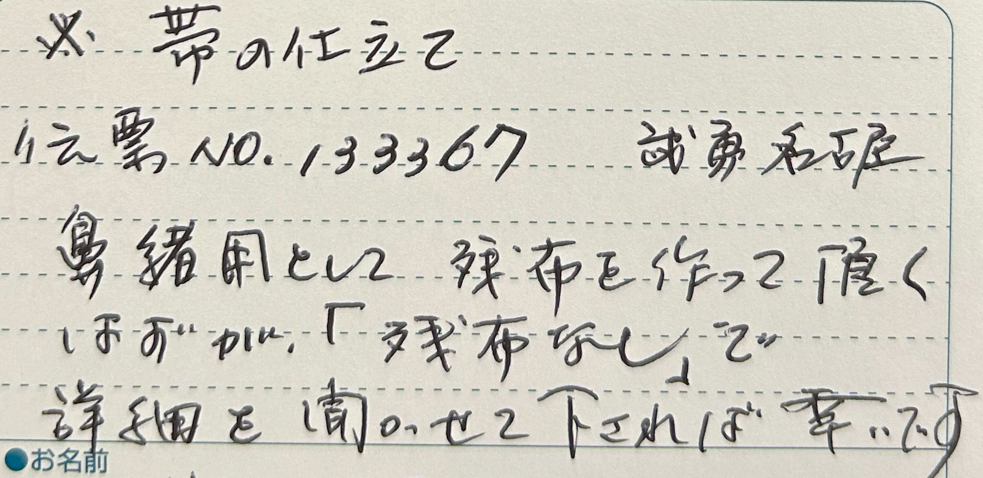 ※ 帯の仕立て
伝票NO.133367 誠勇 名古屋
鼻緒用として 残布を作って頂く
はずが、「残布なし」で
詳細を聞かせて下されば幸いです
●お名前